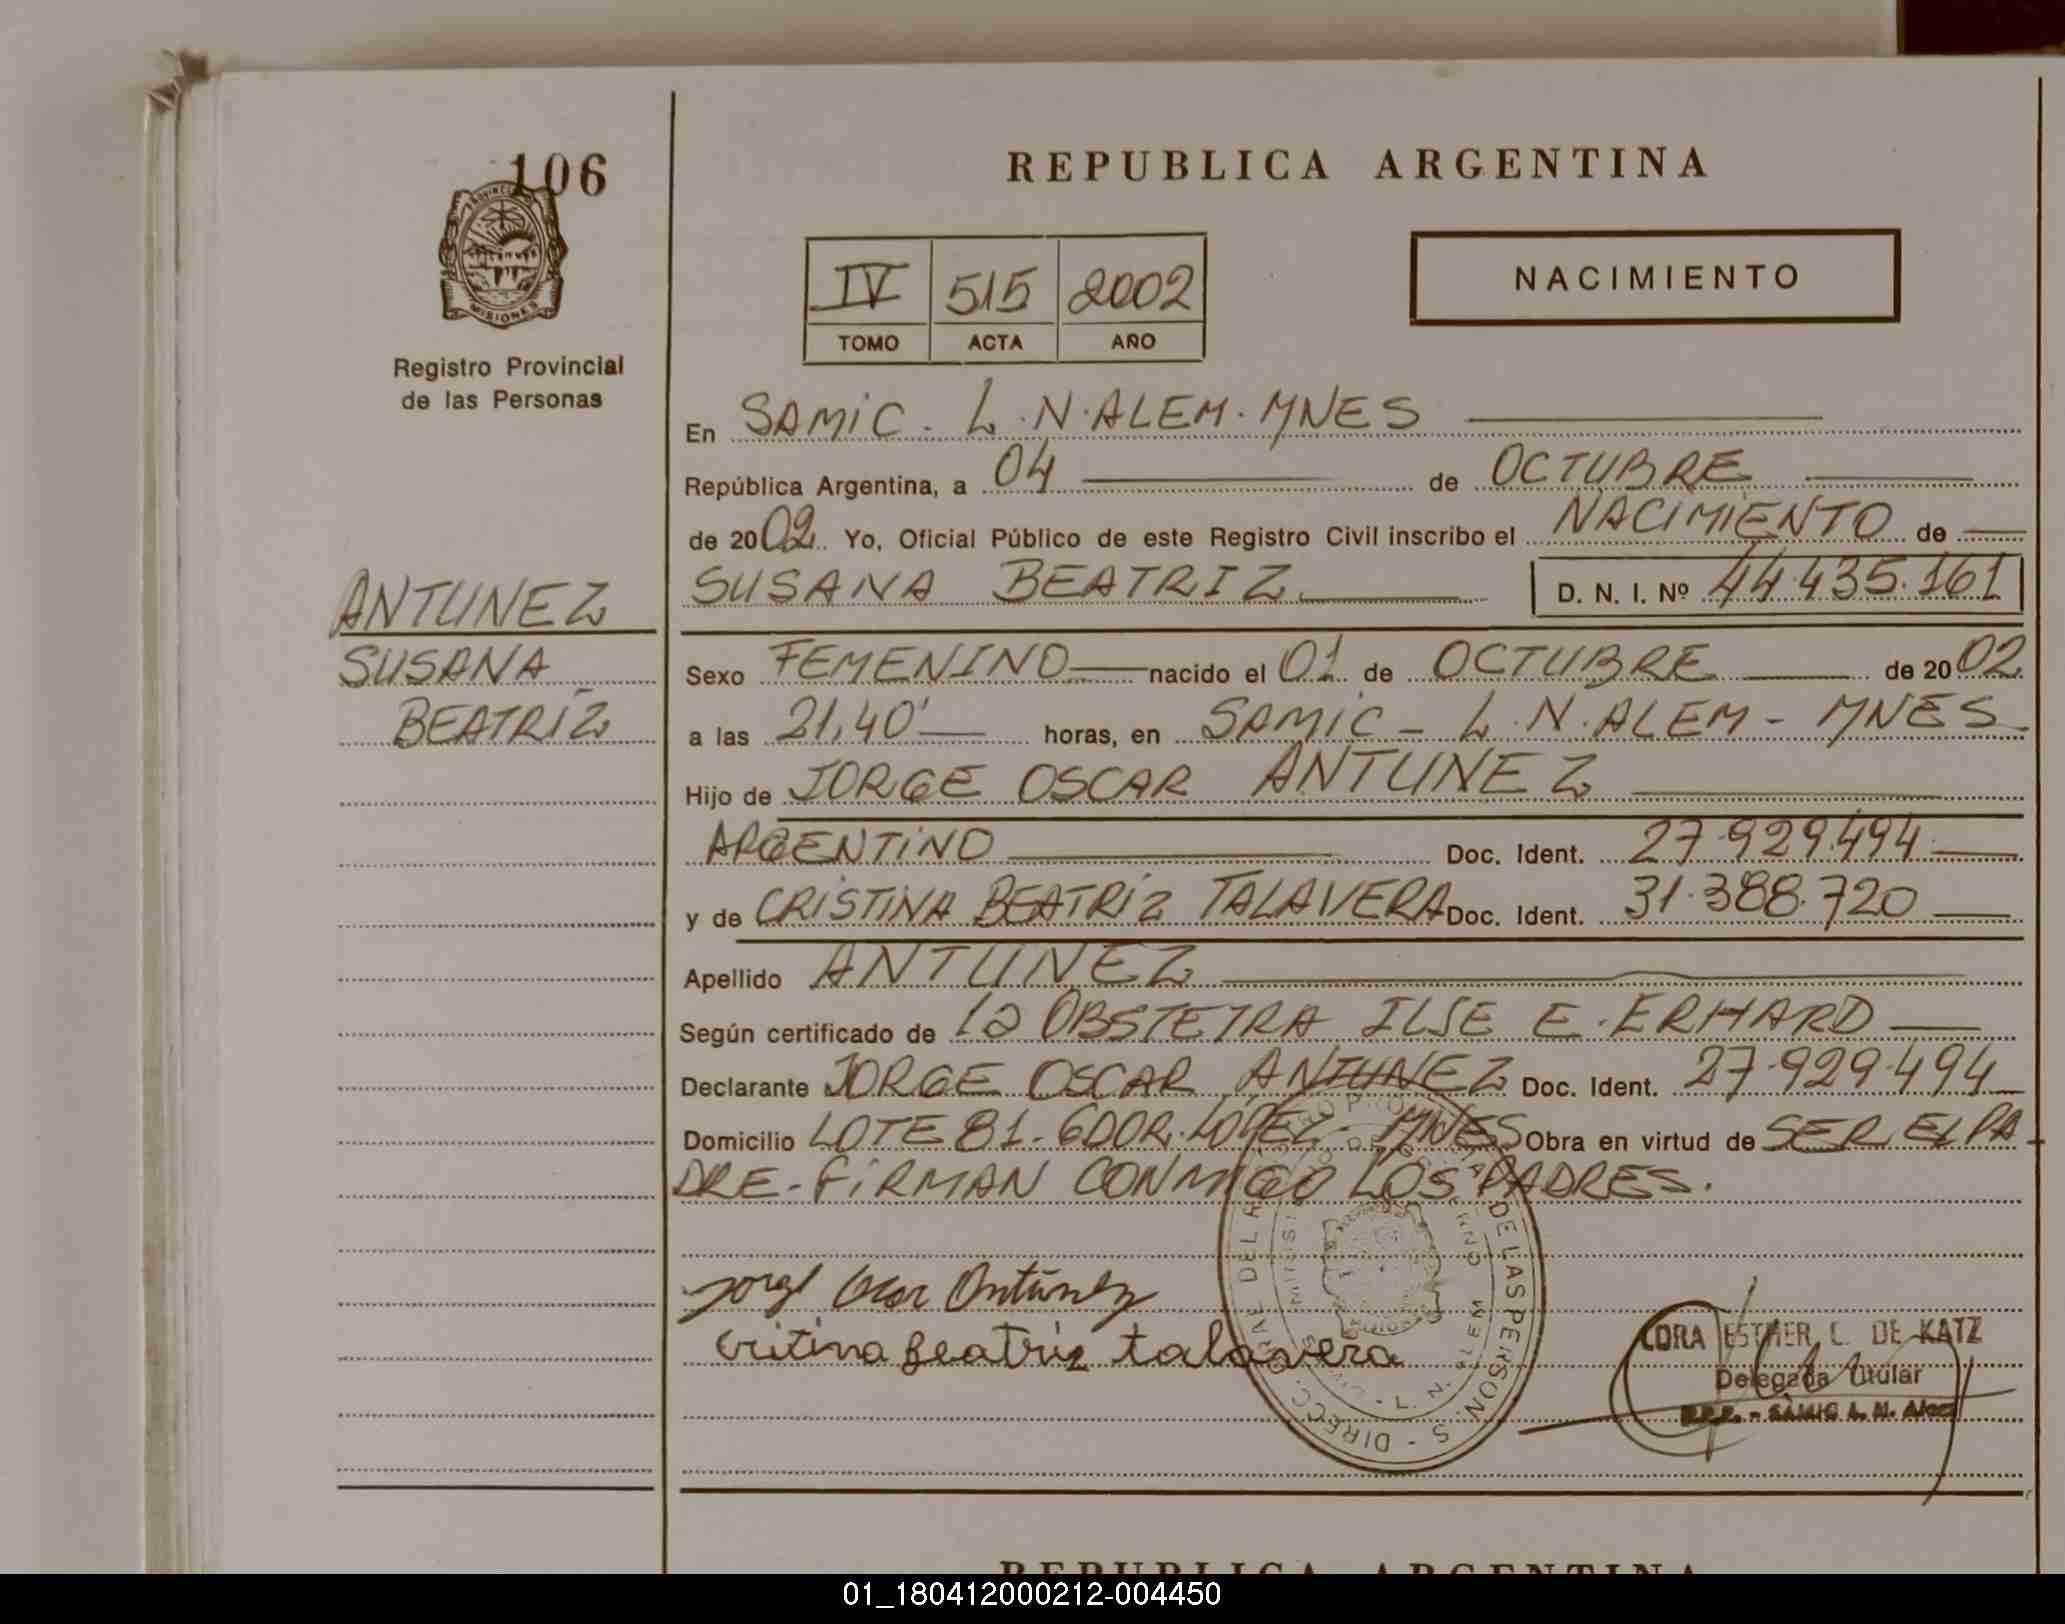 106
PROVINCIA
MISIONES
Registro Provincial
de las Personas
ANTUNEZ
SUSANA
BEATRIZ
REPUBLICA ARGENTINA
IV 515 2002
TOMO ACTA AÑO
NACIMIENTO
En SAMIC. L.N.ALEM. MNES
República Argentina, a 04 de OCTUBRE
de 2002. Yo, Oficial Público de este Registro Civil inscribo el NACIMIENTO de
SUSANA BEATRIZ D. N. I. Nº 44.435.161
Sexo FEMENINO nacido el 01 de OCTUBRE de 2002
a las 21,40' horas, en SAMIC - L.N.ALEM - MNES
Hijo de JORGE OSCAR ANTUNEZ
ARGENTINO Doc. Ident. 27.929.494
y de CRISTINA BEATRIZ TALAVERA Doc. Ident. 31.388.720
Apellido ANTUNEZ
Según certificado de la OBSTETRA ILSE E. ERHARD
Declarante JORGE OSCAR ANTUNEZ Doc. Ident. 27.929.494
Domicilio LOTE 81. GDOR. LOPEZ - MNES Obra en virtud de SER EL PA-
DRE - FIRMAN CONMIGO LOS PADRES.
Jorge Oscar Antúnez
Critina Beatriz talavera
DE LAS PERSONAS - DIRECC. GRAL. DEL
L. N. ALEM
CORA ESTHER C. DE KATZ
Delegada Titular
R.P.P. - SAMIC L. N. Alem
REPUBLICA ARGENTINA
01_180412000212-004450